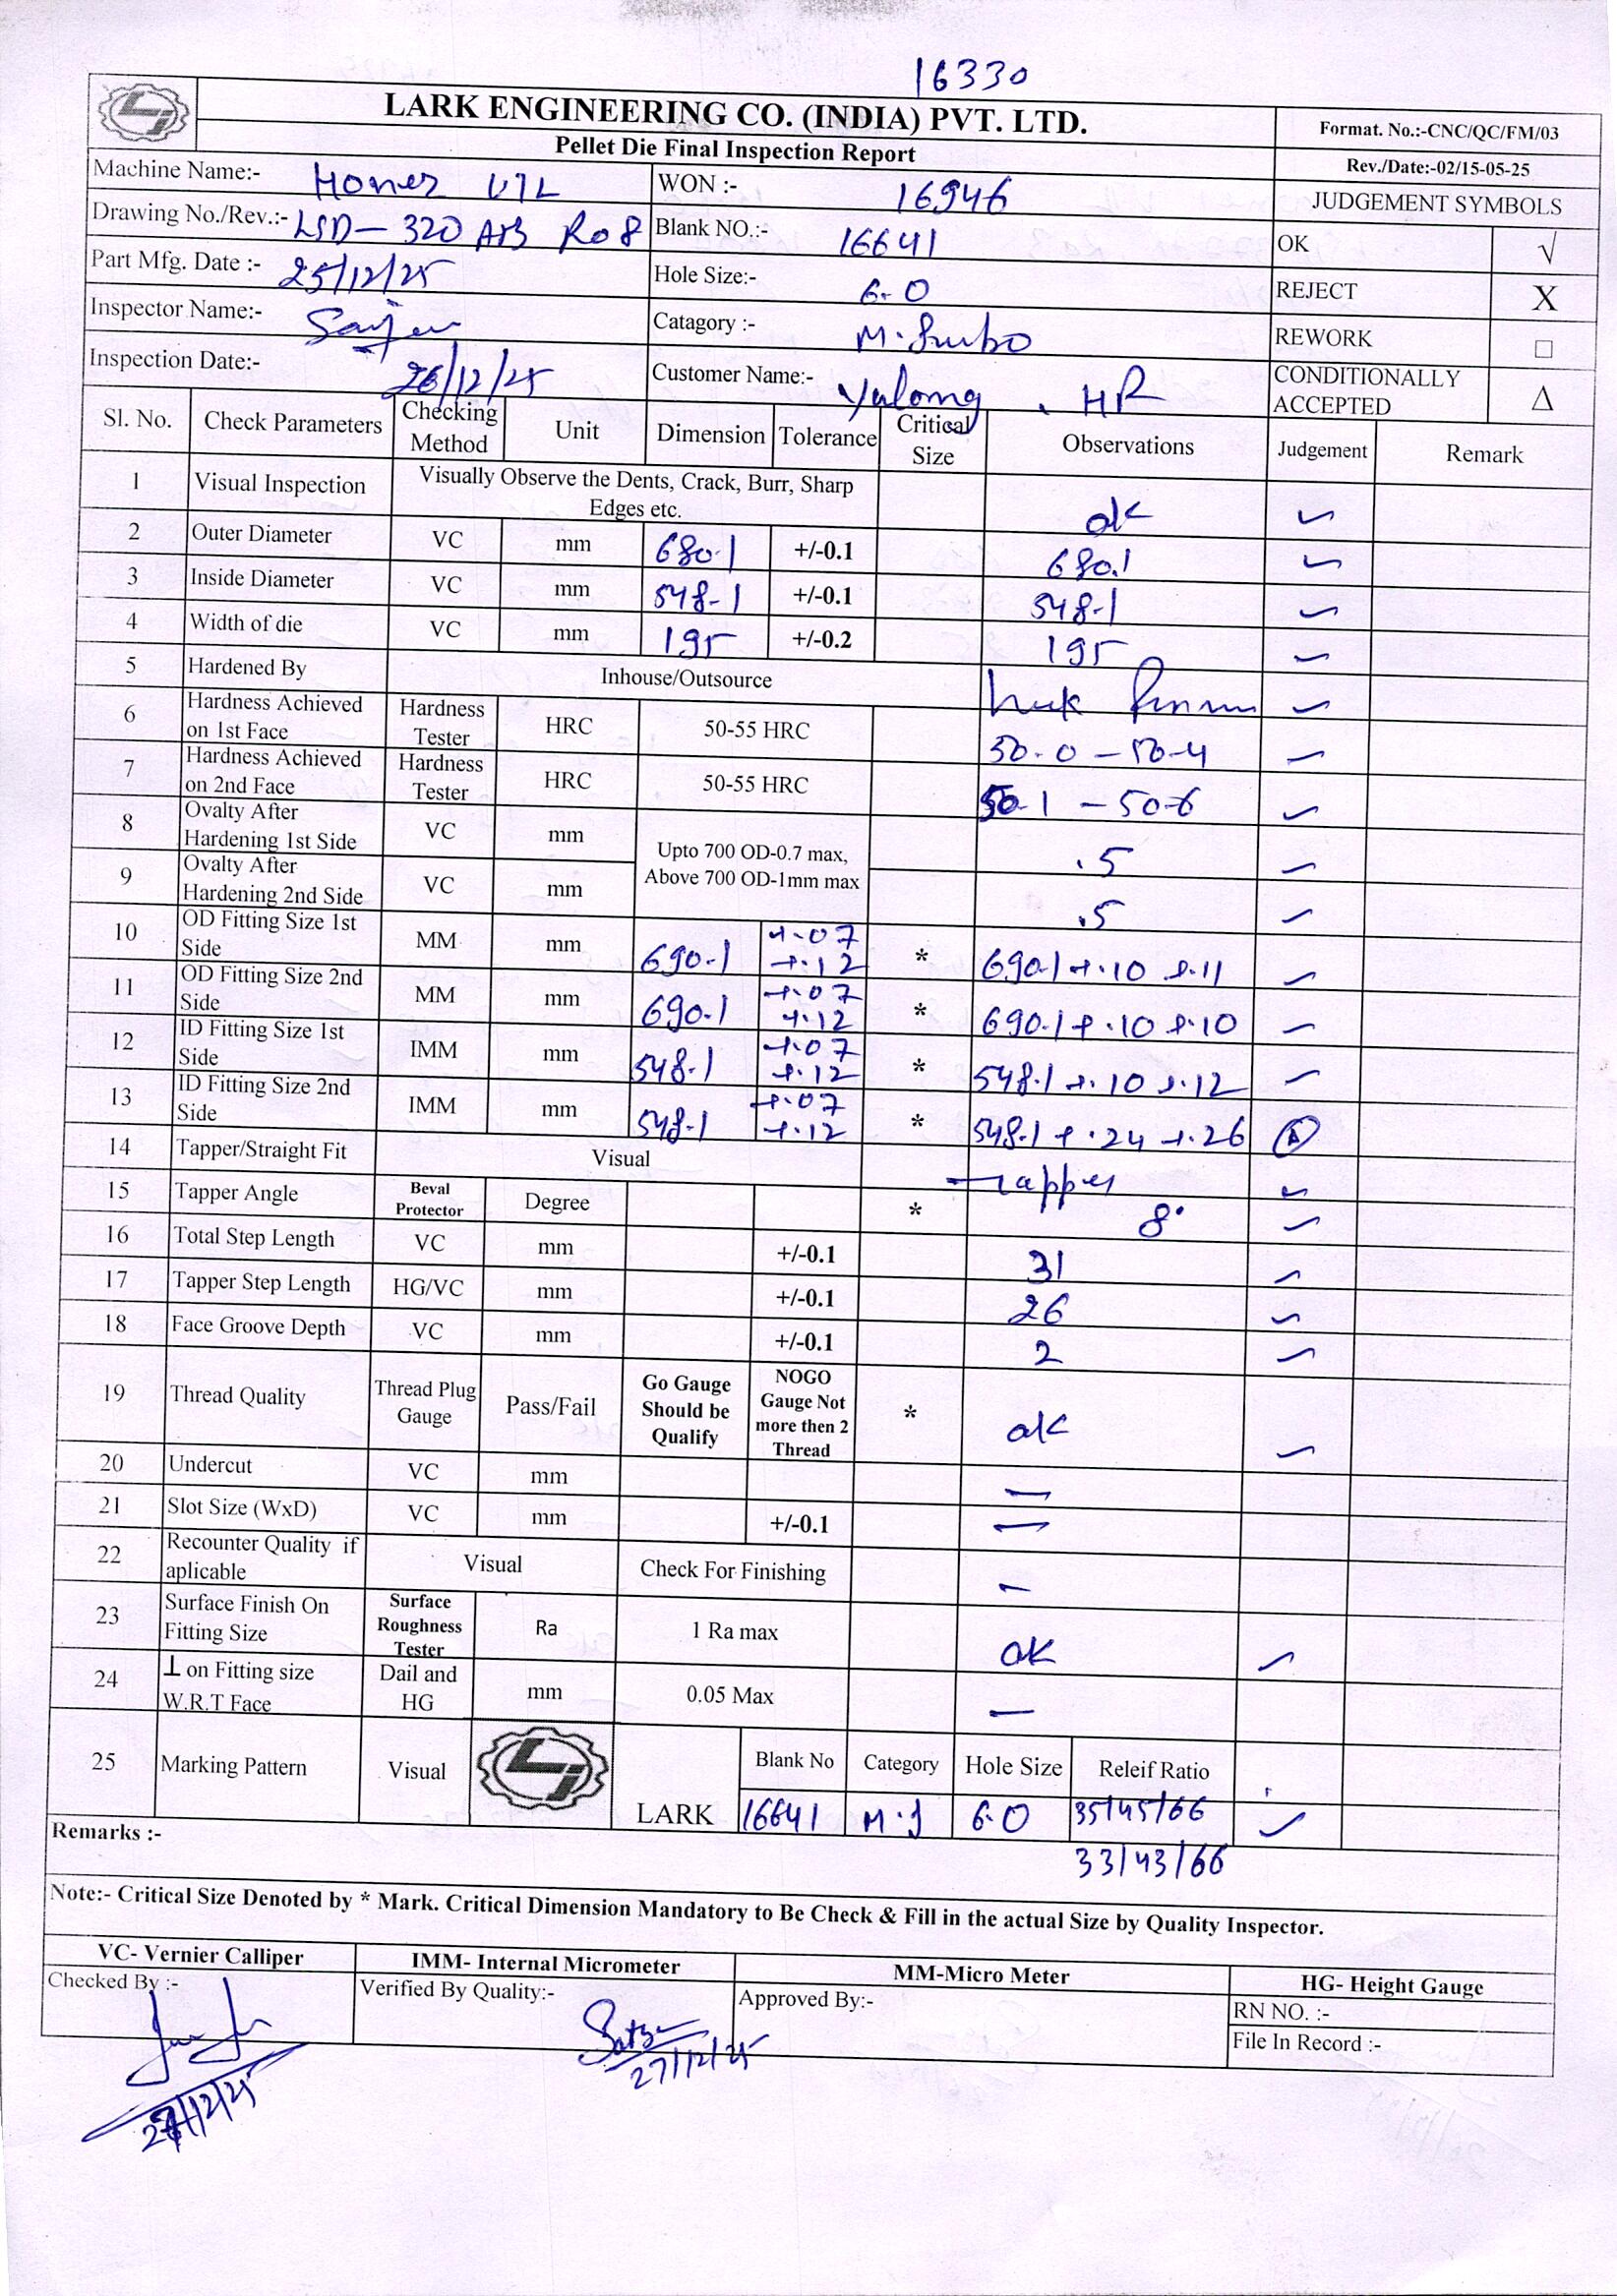 16330
LARK ENGINEERING CO. (INDIA) PVT. LTD.
Pellet Die Final Inspection Report
Format. No.:-CNC/QC/FM/03
Rev./Date:-02/15-05-25
Machine Name:- VTL
WON :- 16946
JUDGEMENT SYMBOLS
Drawing No./Rev.:- LSD-320 AB R08
Blank NO.:- 16641
OK √
Part Mfg. Date :- 25/12/25
Hole Size:- 6.0
REJECT X
Inspector Name:-
Catagory :- M.
REWORK □
Inspection Date:- 26/12/25
Customer Name:- Yulong , HR
CONDITIONALLY ACCEPTED Δ
Sl. No. Check Parameters Checking Method Unit Dimension Tolerance Critical Size Observations Judgement Remark
1 Visual Inspection Visually Observe the Dents, Crack, Burr, Sharp Edges etc. ok ✓
2 Outer Diameter VC mm 680.1 +/-0.1 680.1 ✓
3 Inside Diameter VC mm 548.1 +/-0.1 548.1 ✓
4 Width of die VC mm 195 +/-0.2 195 ✓
5 Hardened By Inhouse/Outsource ✓
6 Hardness Achieved on 1st Face Hardness Tester HRC 50-55 HRC 50.0 - 50.4 ✓
7 Hardness Achieved on 2nd Face Hardness Tester HRC 50-55 HRC 50.1 - 50.6 ✓
8 Ovalty After Hardening 1st Side VC mm Upto 700 OD-0.7 max, Above 700 OD-1mm max .5 ✓
9 Ovalty After Hardening 2nd Side VC mm .5 ✓
10 OD Fitting Size 1st Side MM mm 690.1 +.07 +.12 * 690.1 +.10 +.11 ✓
11 OD Fitting Size 2nd Side MM mm 690.1 +.07 +.12 * 690.1 +.10 +.10 ✓
12 ID Fitting Size 1st Side IMM mm 548.1 +.07 +.12 * 548.1 +.10 +.12 ✓
13 ID Fitting Size 2nd Side IMM mm 548.1 +.07 +.12 * 548.1 +.24 +.26
14 Tapper/Straight Fit Visual Tapper ✓
15 Tapper Angle Beval Protector Degree * 8° ✓
16 Total Step Length VC mm +/-0.1 31 ✓
17 Tapper Step Length HG/VC mm +/-0.1 26 ✓
18 Face Groove Depth VC mm +/-0.1 2 ✓
19 Thread Quality Thread Plug Gauge Pass/Fail Go Gauge Should be Qualify NOGO Gauge Not more then 2 Thread * ok ✓
20 Undercut VC mm —
21 Slot Size (WxD) VC mm +/-0.1 —
22 Recounter Quality if aplicable Visual Check For Finishing —
23 Surface Finish On Fitting Size Surface Roughness Tester Ra 1 Ra max ok ✓
24 ⊥ on Fitting size W.R.T Face Dail and HG mm 0.05 Max —
25 Marking Pattern Visual LARK Blank No Category Hole Size Releif Ratio
16641 M.J 6.0 35/45/66 ✓
Remarks :- 33/43/66
Note:- Critical Size Denoted by * Mark. Critical Dimension Mandatory to Be Check & Fill in the actual Size by Quality Inspector.
VC- Vernier Calliper IMM- Internal Micrometer MM-Micro Meter HG- Height Gauge
Checked By :- Verified By Quality:- Approved By:- RN NO. :-
File In Record :-
27/12/25